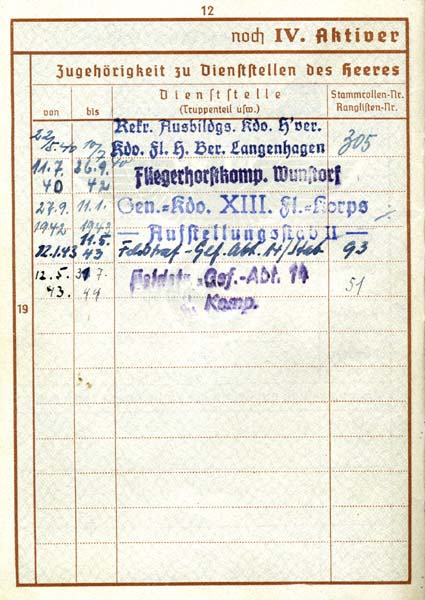 12
noch IV. Aktiver
Zugehörigkeit zu Dienststellen des Heeres
von
bis
Dienststelle
(Truppenteil usw.)
Stammrollen-Nr.
Ranglisten-Nr.
22/5.40
Rekr. Ausbildgs. Kdo. H'ver.
Kdo. Fl. H. Ber. Langenhagen
305
11.7. 40
26.9. 42
Fliegerhorstkomp. Wunstorf
27.9. 1942
11.1. 1943
Gen.-Kdo. XIII. Fl.-Korps
— Aufstellungsstab II —
12.1.43
11.5. 43
Feldstraf-Gef.-Abt. 14/Stab
93
12.5. 43.
7. 44
Feldstr.-Gef.-Abt. 14
Komp.
51
19